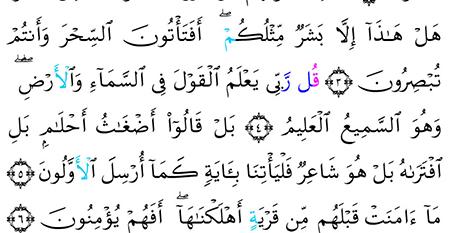 هَلْ هَـٰذَآ إِلَّا بَشَرٌ مِّثْلُكُمْ ۖ أَفَتَأْتُونَ السِّحْرَ وَأَنتُمْ
تُبْصِرُونَ ﴿٣﴾ قُل رَّبِّى يَعْلَمُ الْقَوْلَ فِى السَّمَآءِ وَالْأَرْضِ ۖ
وَهُوَ السَّمِيعُ الْعَلِيمُ ﴿٤﴾ بَلْ قَالُوٓا۟ أَضْغَـٰثُ أَحْلَـٰمٍۭ بَلِ
افْتَرَىٰهُ بَلْ هُوَ شَاعِرٌ فَلْيَأْتِنَا بِـَٔايَةٍ كَمَآ أُرْسِلَ الْأَوَّلُونَ ﴿٥﴾
مَآ ءَامَنَتْ قَبْلَهُم مِّن قَرْيَةٍ أَهْلَكْنَـٰهَآ ۖ أَفَهُمْ يُؤْمِنُونَ ﴿٦﴾